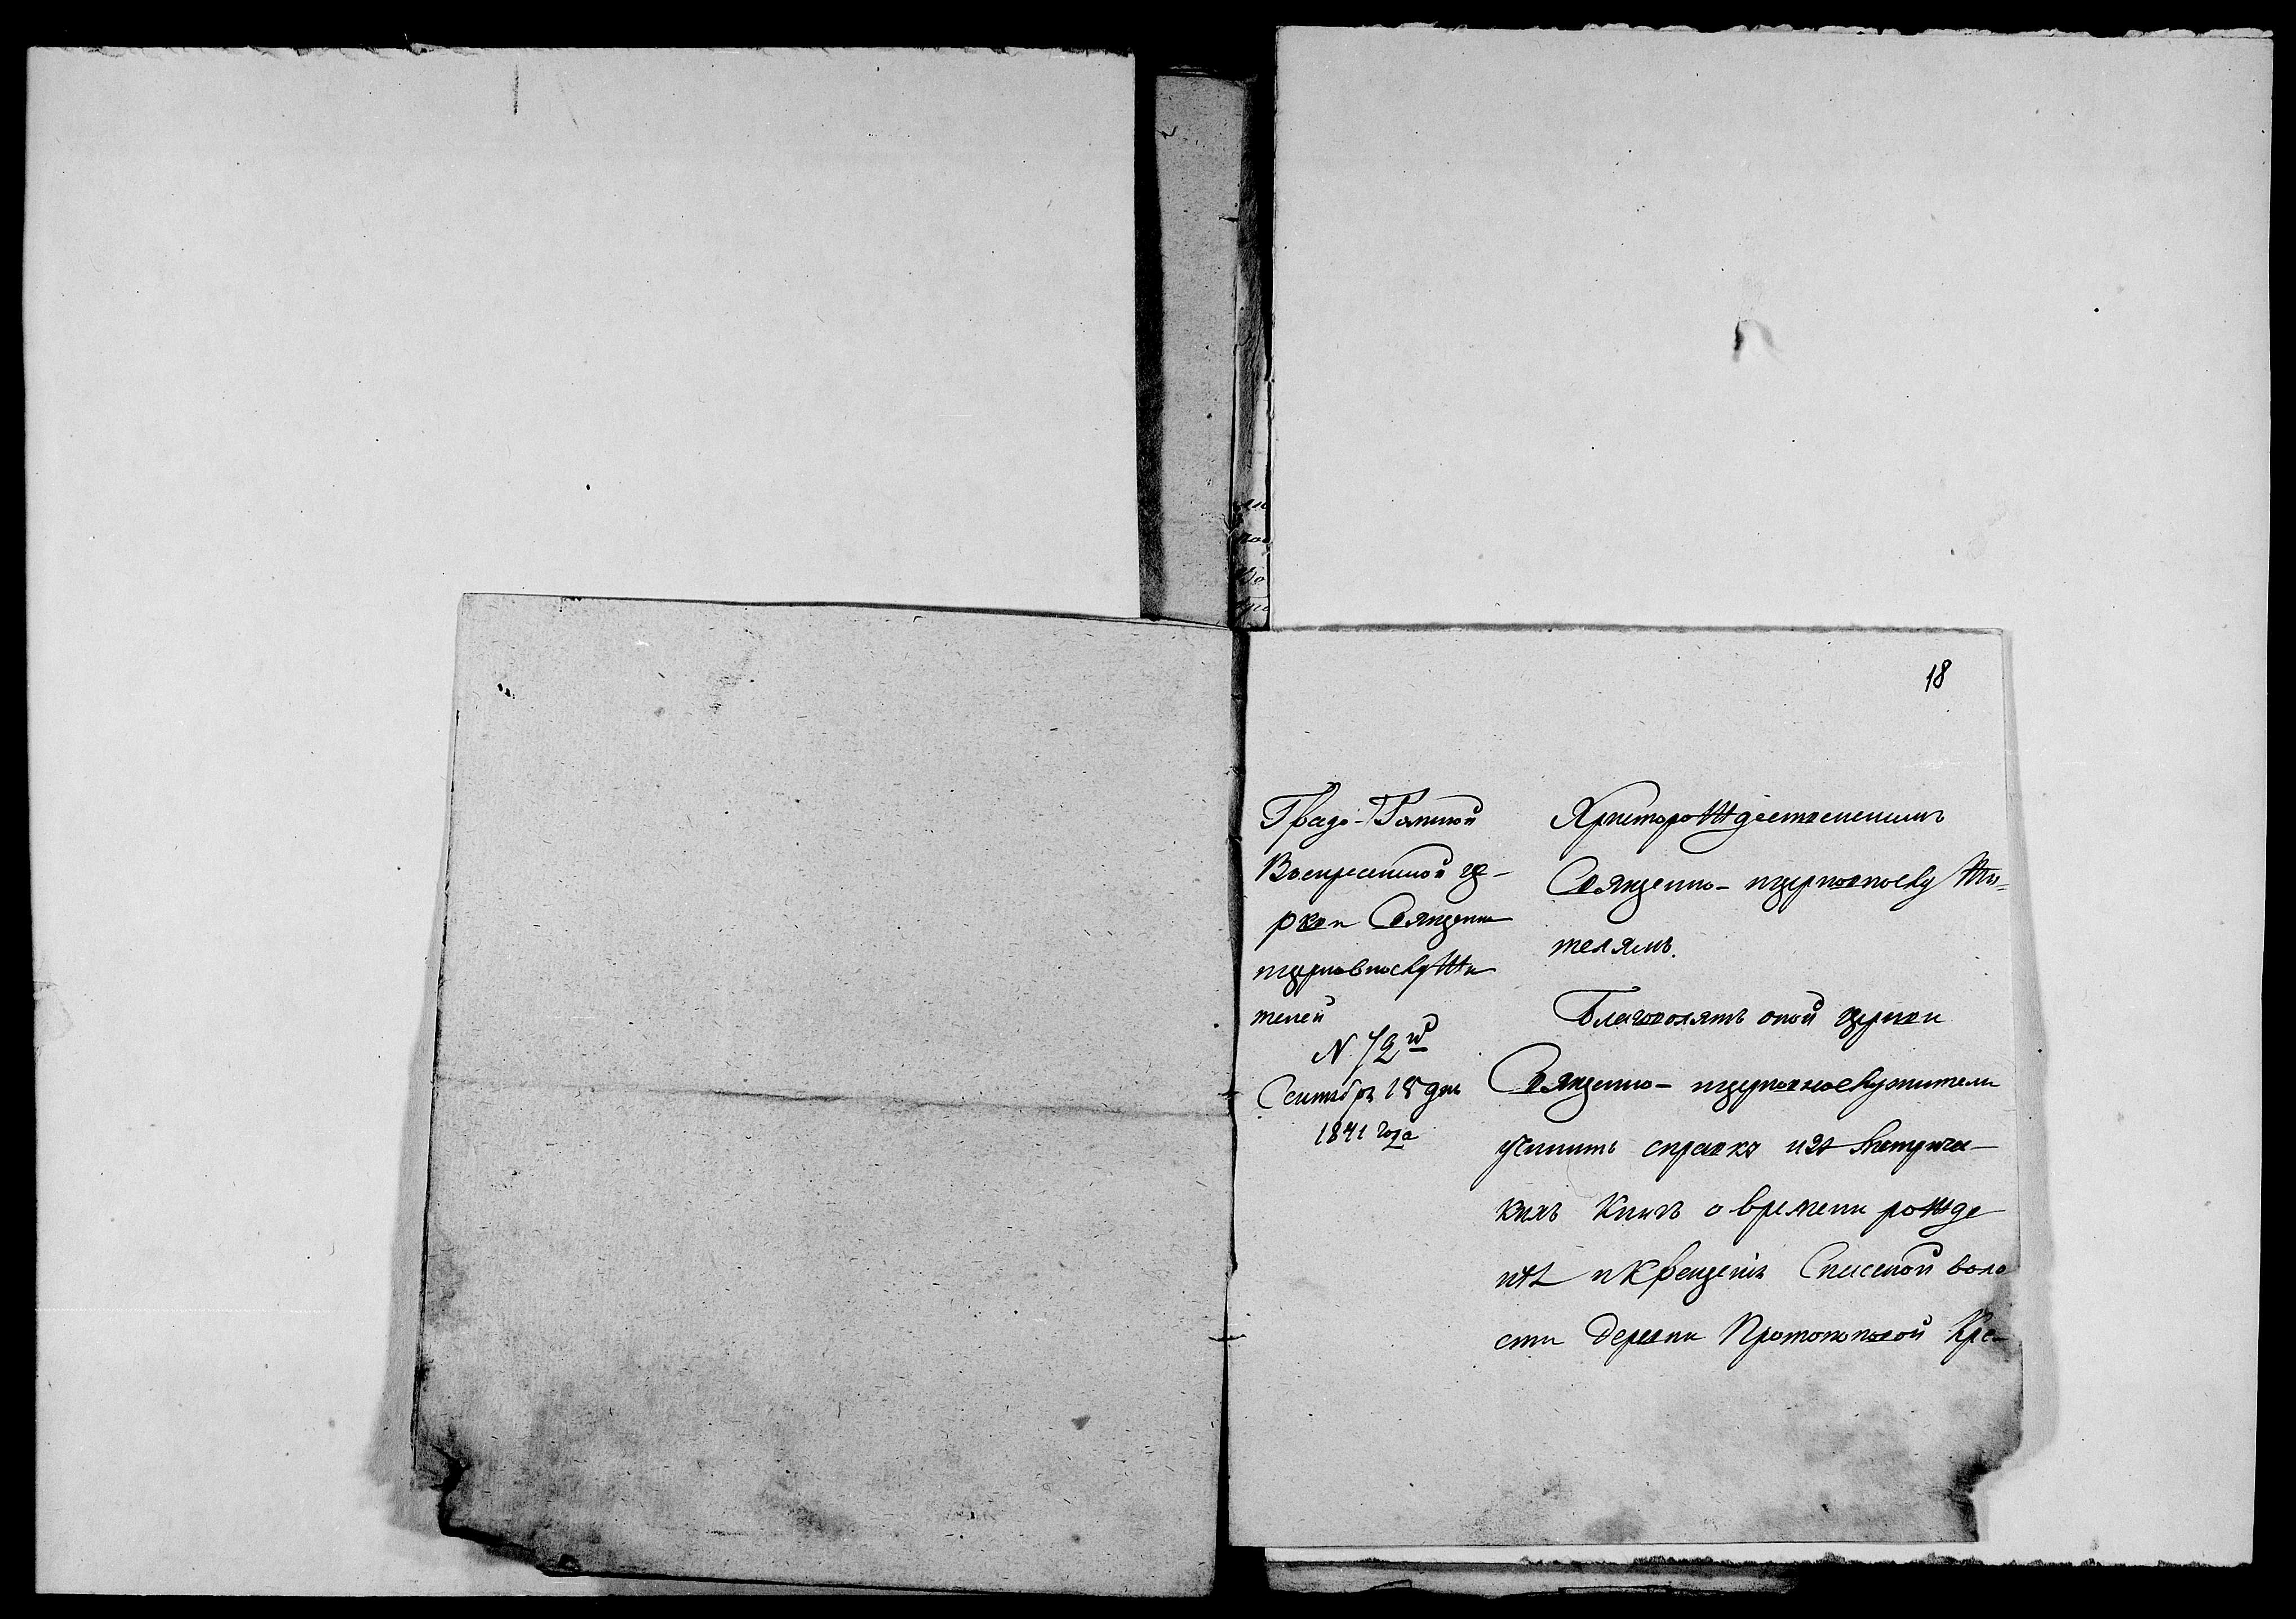 18
Градо-Томской
Воскресенской це-
ркви Священно
церковнослужи
телей
N. 72й
Сентября 18 дня
1841 года
Христорождественскимъ
Священно-церковнослужи=
телямъ.
Благоволятъ оной церкви
Священно-церковнослужители
учинить справкъ изъ Метриче-
кихъ Книгъ о времени рожде
нія и Крещенія Спаской воло
сти деревни Протопоповой Кре-